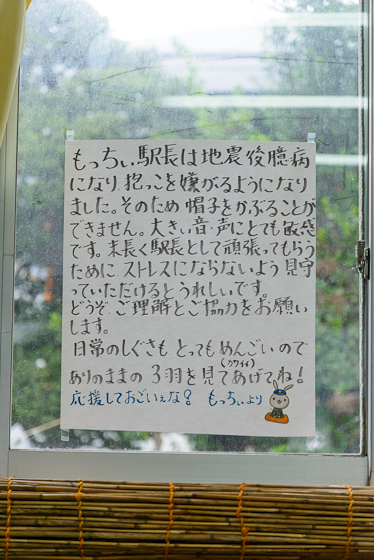 もっちぃ駅長は地震後臆病
になり 抱っこを嫌がるようになり
ました。そのため 帽子をかぶることが
できません。大きい音・声にとても敏感
です。末長く駅長として頑張ってもらう
ために ストレスにならないよう 見守
っていただけるとうれしいです。
どうぞ、ご理解とご協力をお願い
します。
日常のしぐさも とっても めんごい ので
(カワイイ)
ありのままの 3羽を見てあげてね!
応援しておごいぇな! もっちぃより